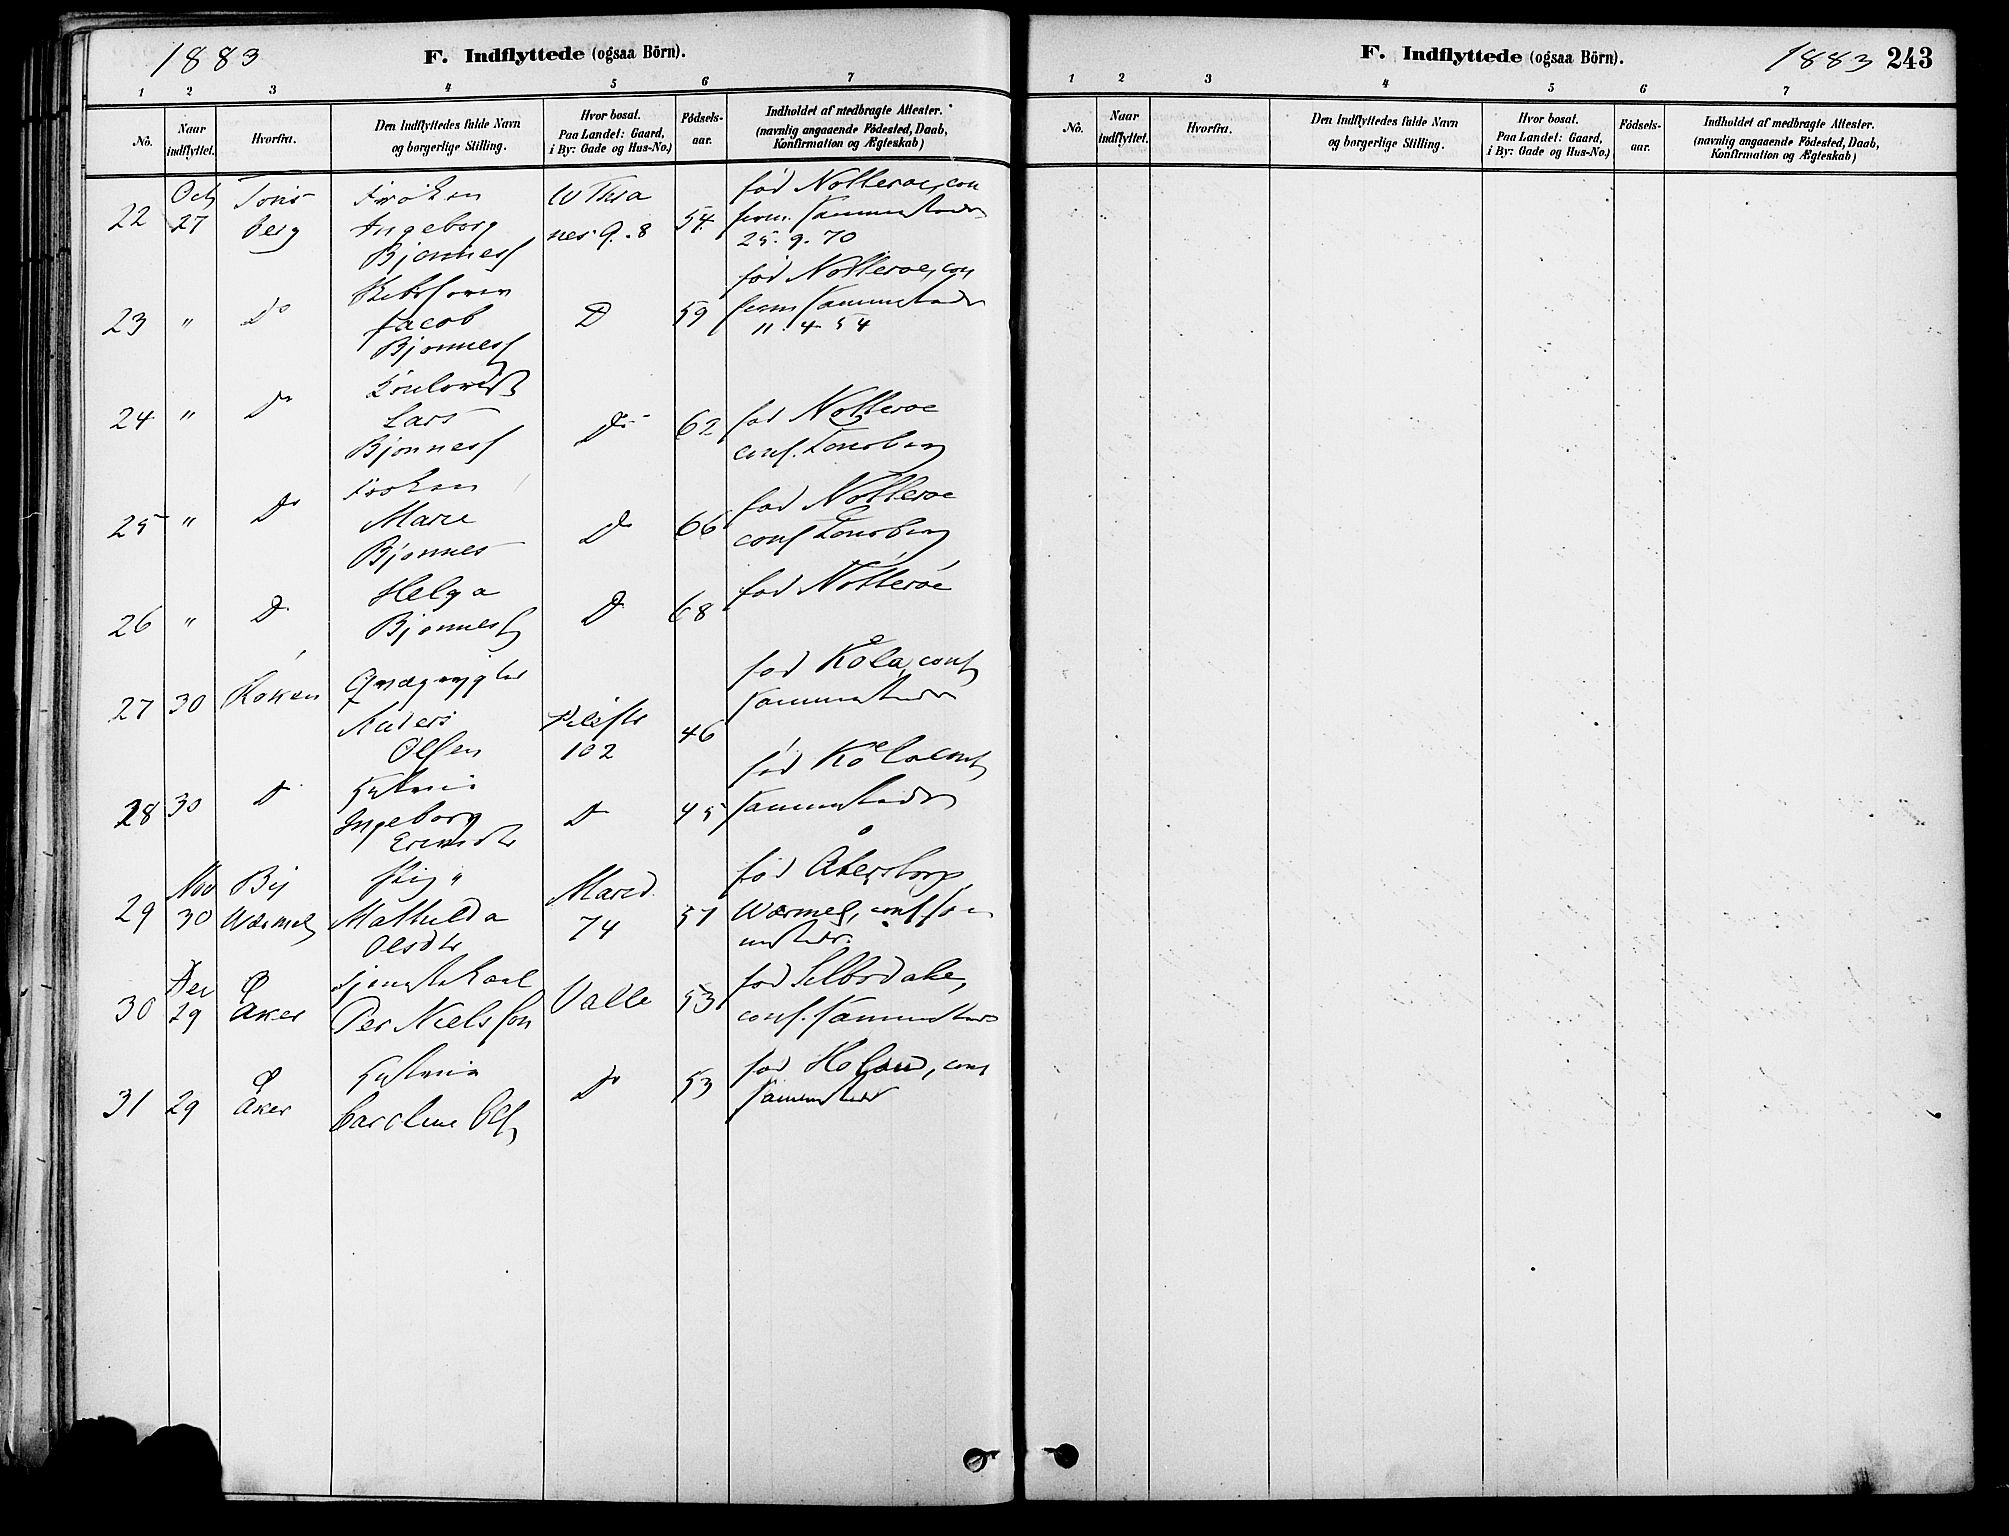 1883
F. Indflyttede (ogsaa Börn).
1 2 3 4 5 6 7
No.
Naar indflyttet.
Hvorfra.
Den Indflyttedes fulde Navn og borgerlige Stilling.
Hvor bosat. Paa Landet: Gaard, i By: Gade og Hus-No.)
Födsels-aar.
Indholdet af medbragte Attester. (navnlig angaaende Födested, Daab, Konfirmation og Ægteskab)
22 Oct 27 Tons berg Froken Ingeborg Bjonness W Thra nes G. 8 54. fod Notteroe, con firm. sammesteds 25.9.70
23 " Do Jacob Bjonness D 59 fod Notteroe, con firm sammesteds 11.4.54
24 " Do Lars Bjonness Do 62 fod Notteroe conf. Tonsberg
25 " Do Froken Marie Bjonnes Do 66 fod Notteroe conf Tonsberg
26 " D Helga Bjonness D 68 fod Notteroe
27 30 Røken Anders Olsen Pilestr 102 46 fød Köla, conf sammesteds
28 30 D Hustruen Ingeborg D 45 fød Köla conf sammesteds
29 Nov 30 By Wærmel Pige Mathilda Olsdtr Marid. 74 51 fød Wærmel, conf sam mesteds.
30 Dec 29 Ø Aker Tjenestekarl Per Nielsson Valle 53 fød conf. sammesteds
31 29 Ø Aker Hustruen Caroline Ols D 53 fød Holand, conf sammesteds
F. Indflyttede (ogsaa Börn).
1883 243
1 2 3 4 5 6 7
No.
Naar indflyttet.
Hvorfra.
Den Indflyttedes fulde Navn og borgerlige Stilling.
Hvor bosat. Paa Landet: Gaard, i By: Gade og Hus-No.)
Födsels-aar.
Indholdet af medbragte Attester. (navnlig angaaende Födested, Daab, Konfirmation og Ægteskab)